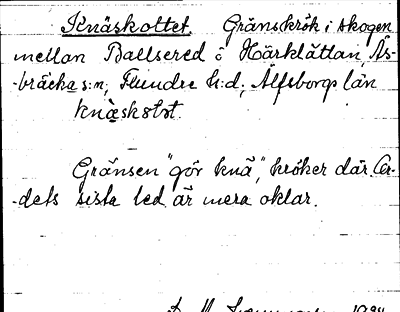 Knäskottet. Gränskrök i skogen
mellan Ballsered o Härklättan, Äs-
-bräcka s:n, Flundre h:d, Älfsborgs län
knäskåt.
Gränsen "gör knä", kröker där. Or-
-dets sista led är mera oklar.